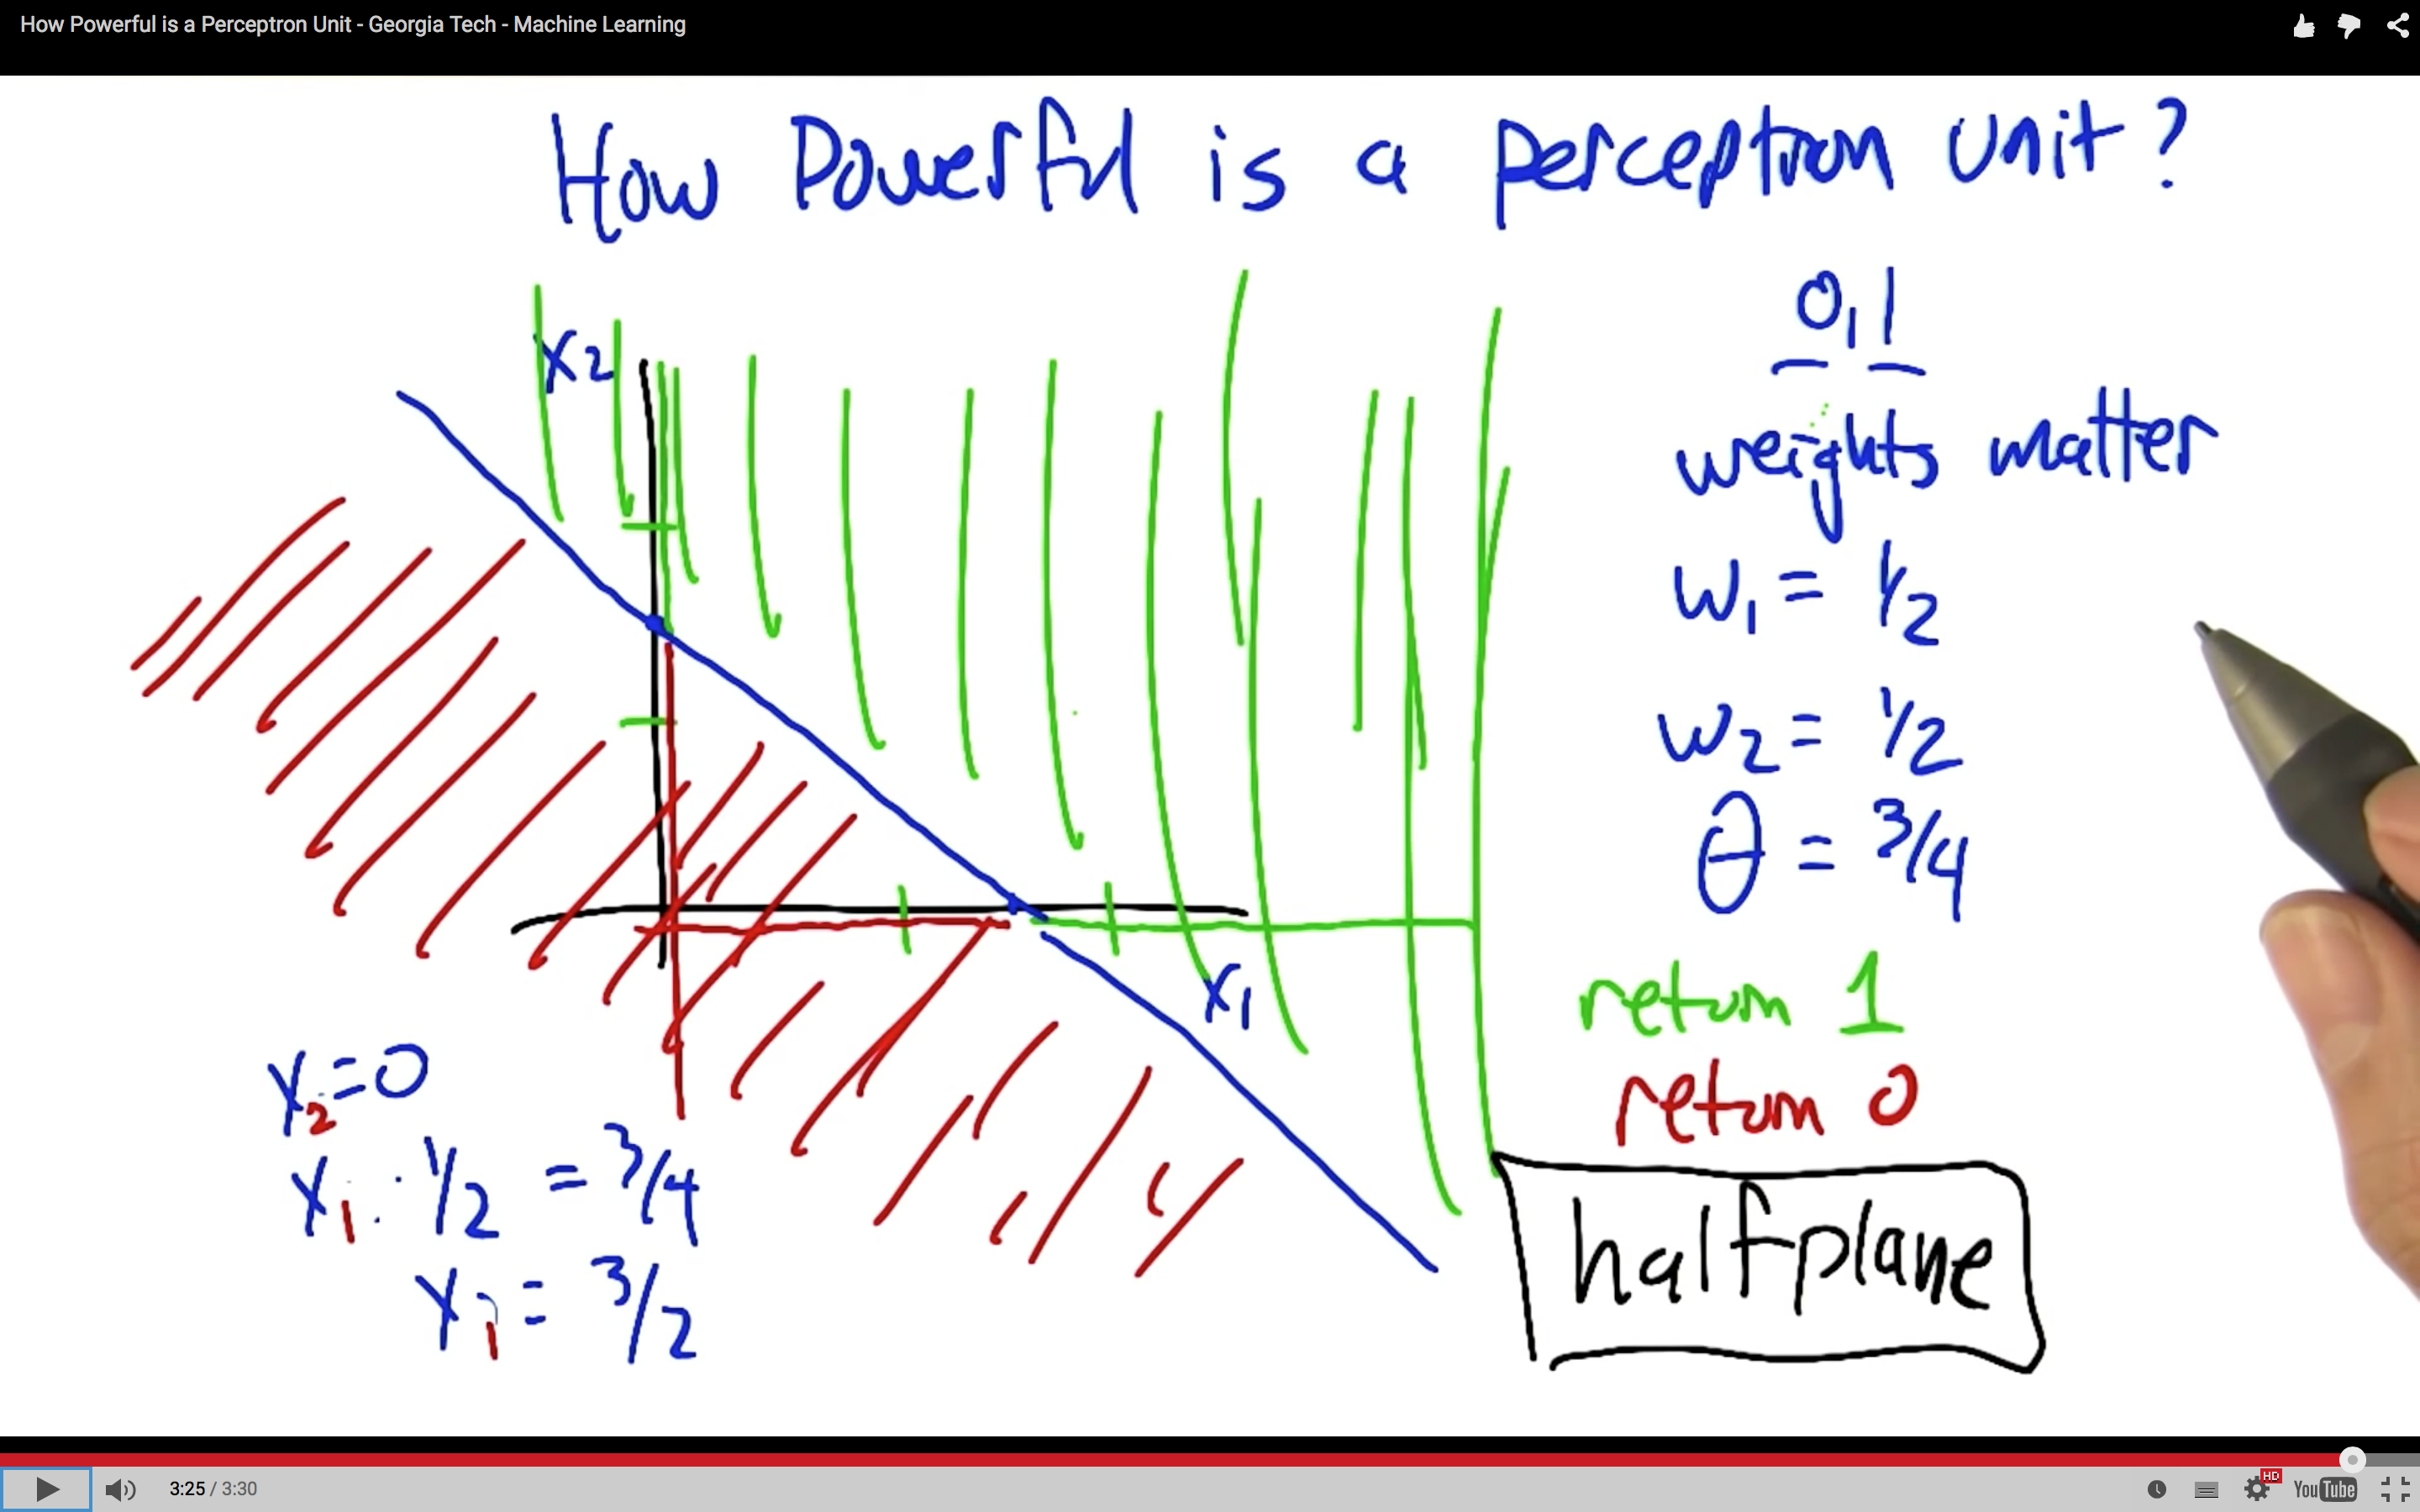 How Powerful is a Perceptron Unit - Georgia Tech - Machine Learning
How Powerful is a perceptron unit?
0,1
X2
weights matter
w1 = 1/2
w2 = 1/2
θ = 3/4
X1
return 1
return 0
halfplane
X2=0
X1 · 1/2 = 3/4
X1 = 3/2
3:25 / 3:30
HD
YouTube